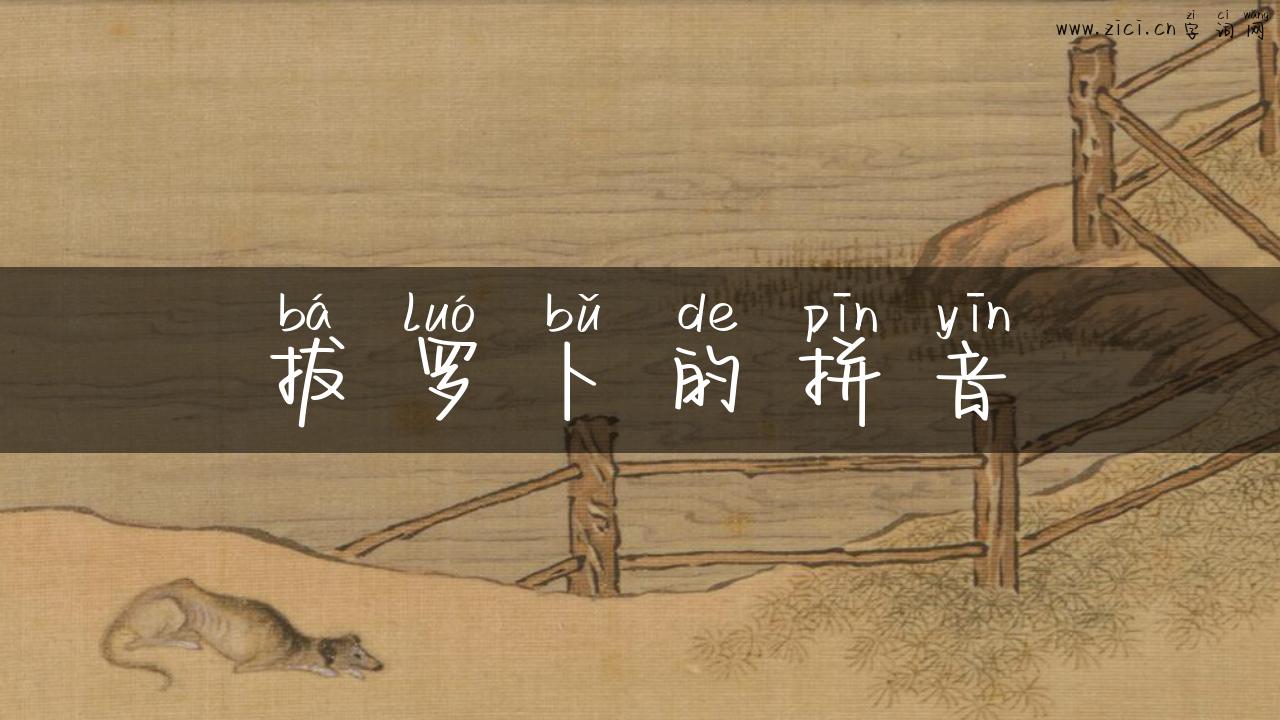 zì cí wǎng
www.zici.cn 字 词 网
bá luó bǔ de pīn yīn
拔 罗 卜 的 拼 音